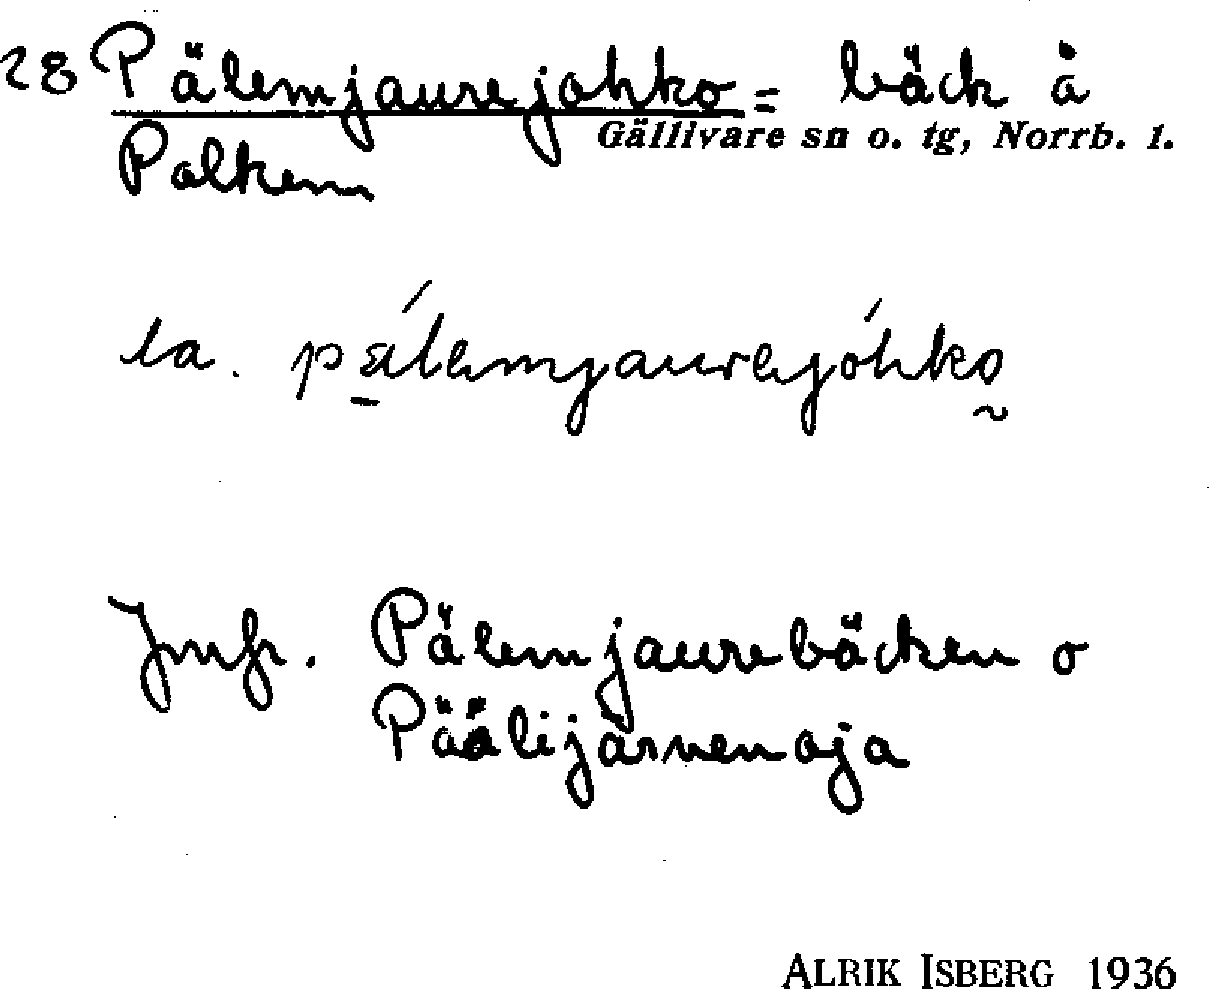 28 Pälemjaurejohko = bäck å
Gällivare sn o. tg, Norrb. l.
Polkem
la. pálemjaurejóhko
Jmfr. Pälemjaurebäcken o
Päälijärvenoja
ALRIK ISBERG 1936